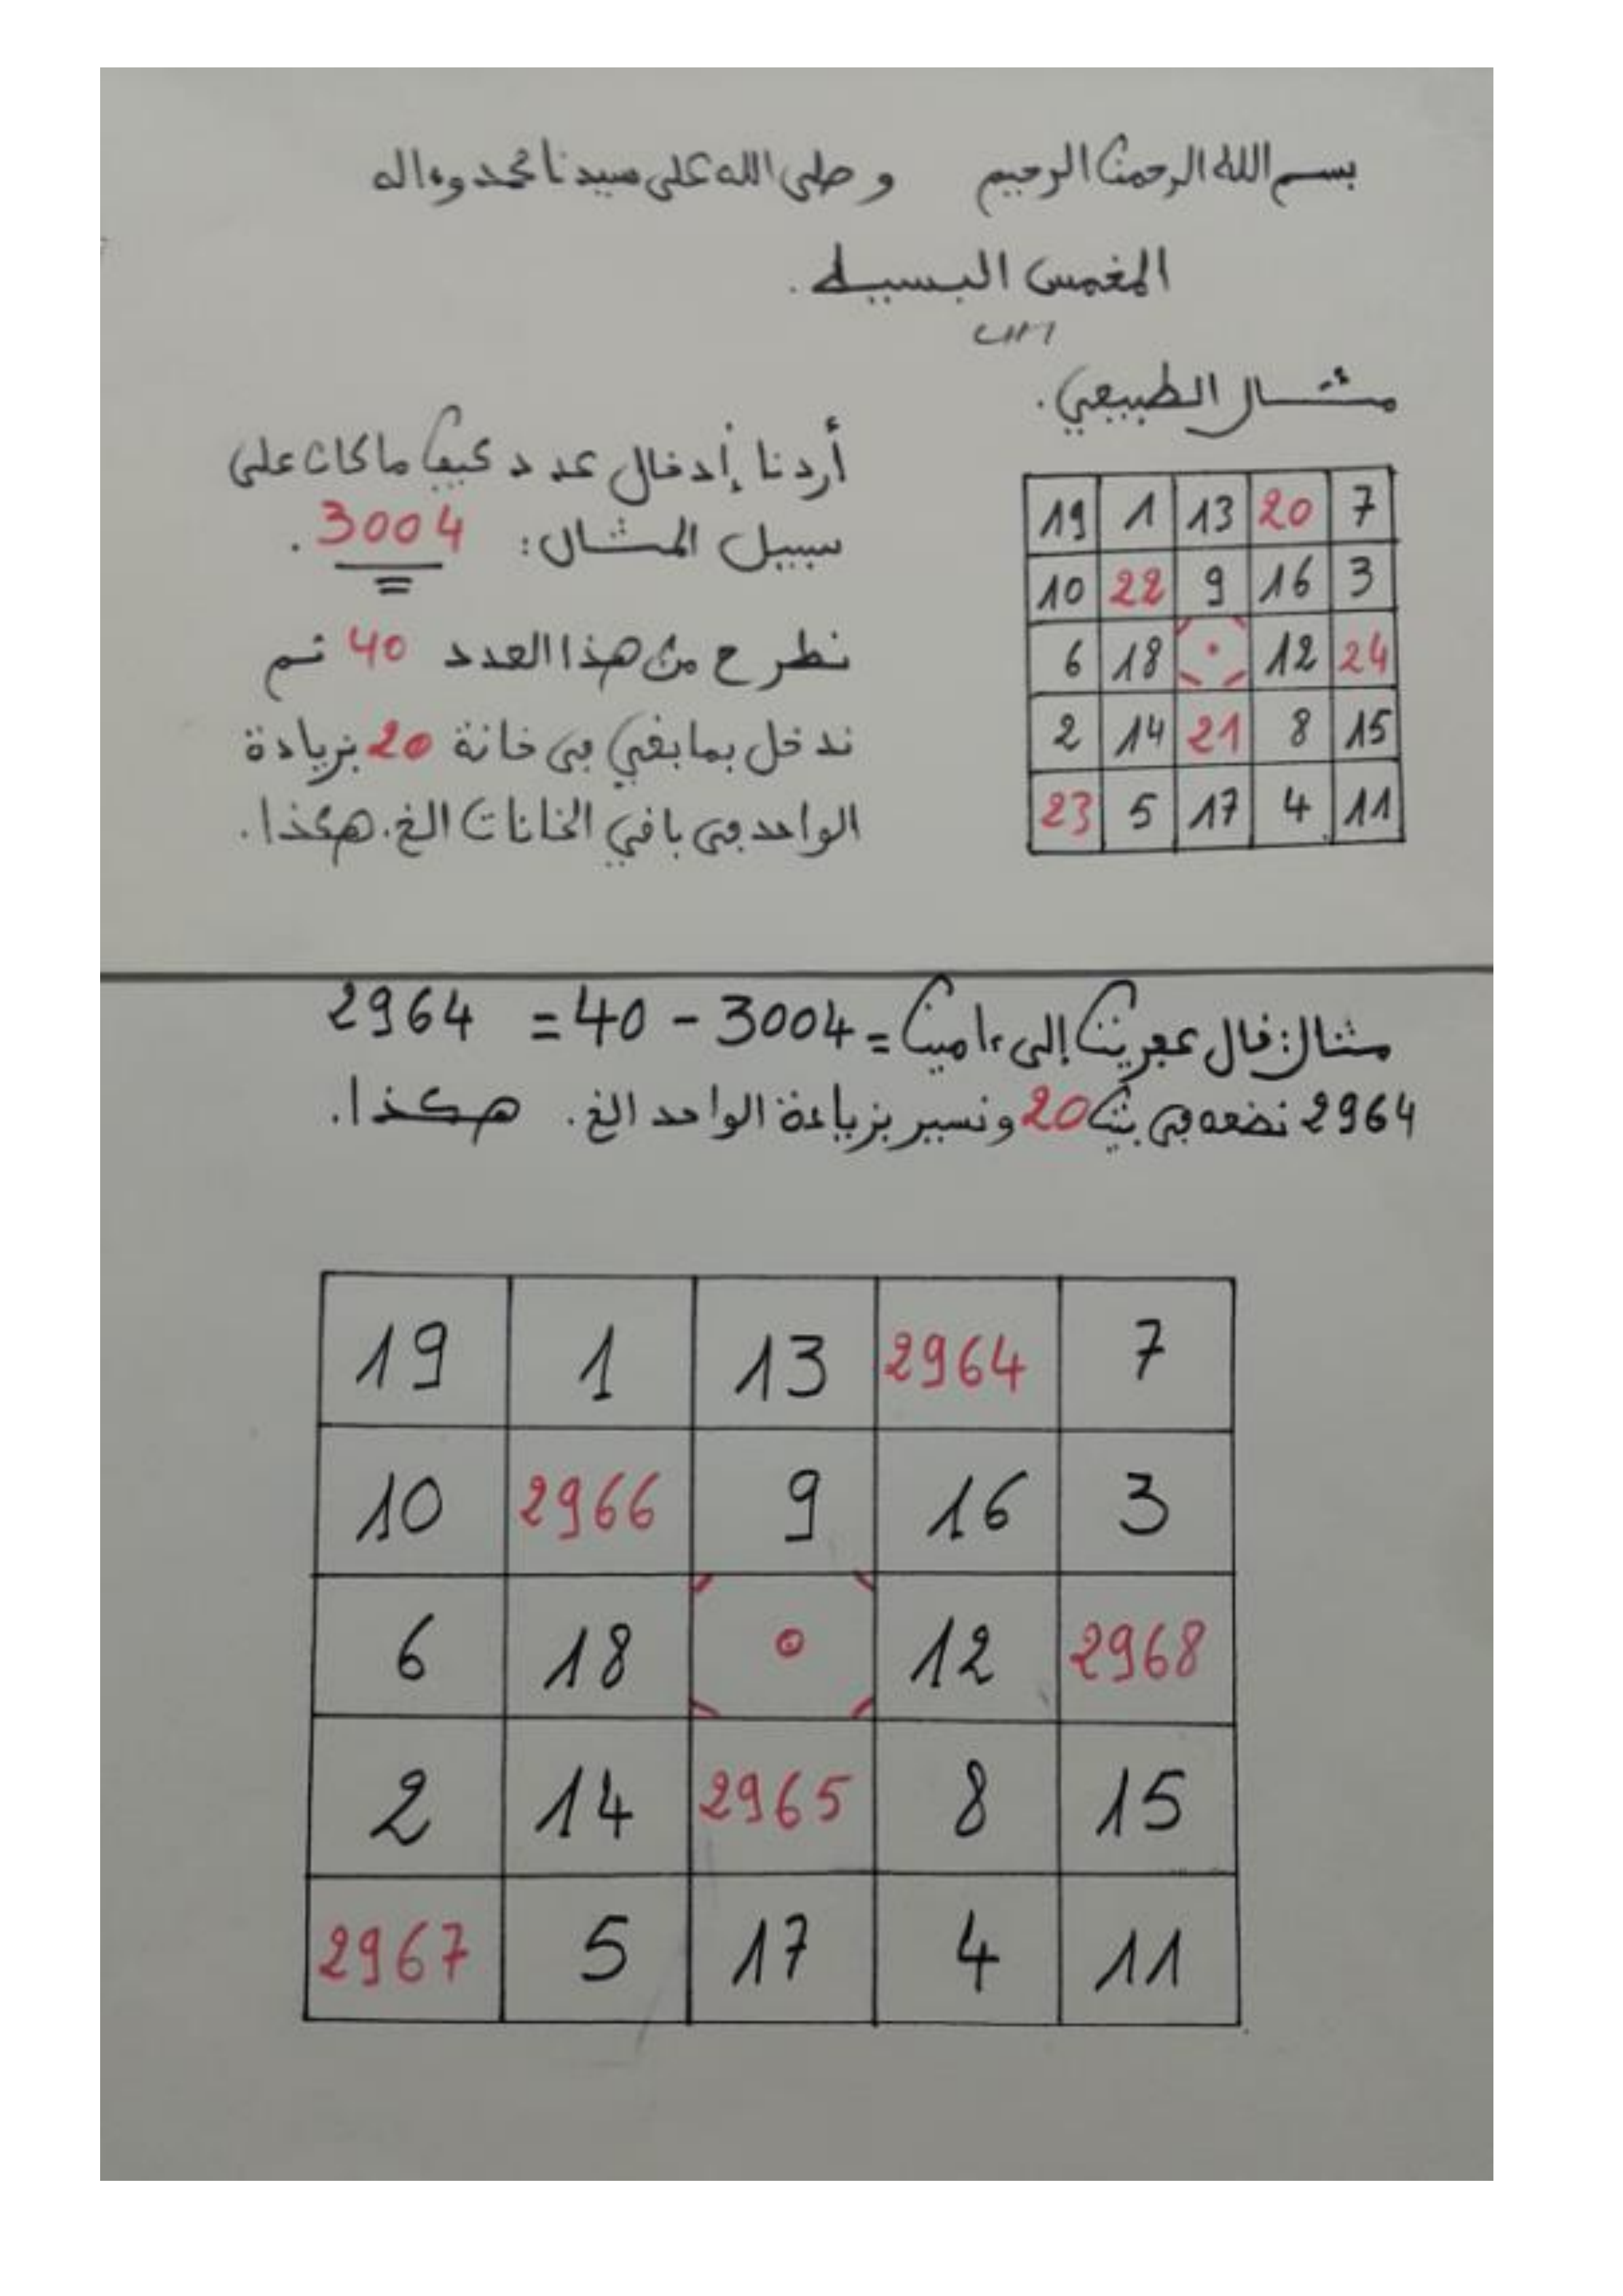 بسم الله الرحمن الرحيم وصلى الله على سيدنا محمد وءاله
المخمس البسيط.
مثال الطبيعي.
19 1 13 20 7
10 22 9 16 3
6 18 12 24
2 14 21 8 15
23 5 17 4 11
أردنا إدخال عدد كيف ما كان على
سبيل المثال: 3004.
نطرح من هذا العدد 40 ثم
ندخل بما بقي في خانة 20 بزيادة
الواحد في باقي الخانات الخ. هكذا.
مثال: قال عفريت إلى ءامين = 3004 - 40 = 2964
2964 نضعه في بيت 20 ونسير بزيادة الواحد الخ. هكذا.
19 1 13 2964 7
10 2966 9 16 3
6 18 12 2968
2 14 2965 8 15
2967 5 17 4 11